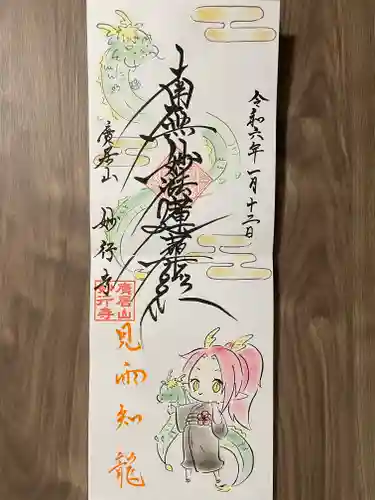 令和六年一月十二日
南無妙法蓮華経
廣居山 妙行寺
廣居山
妙行寺
見雨知龍